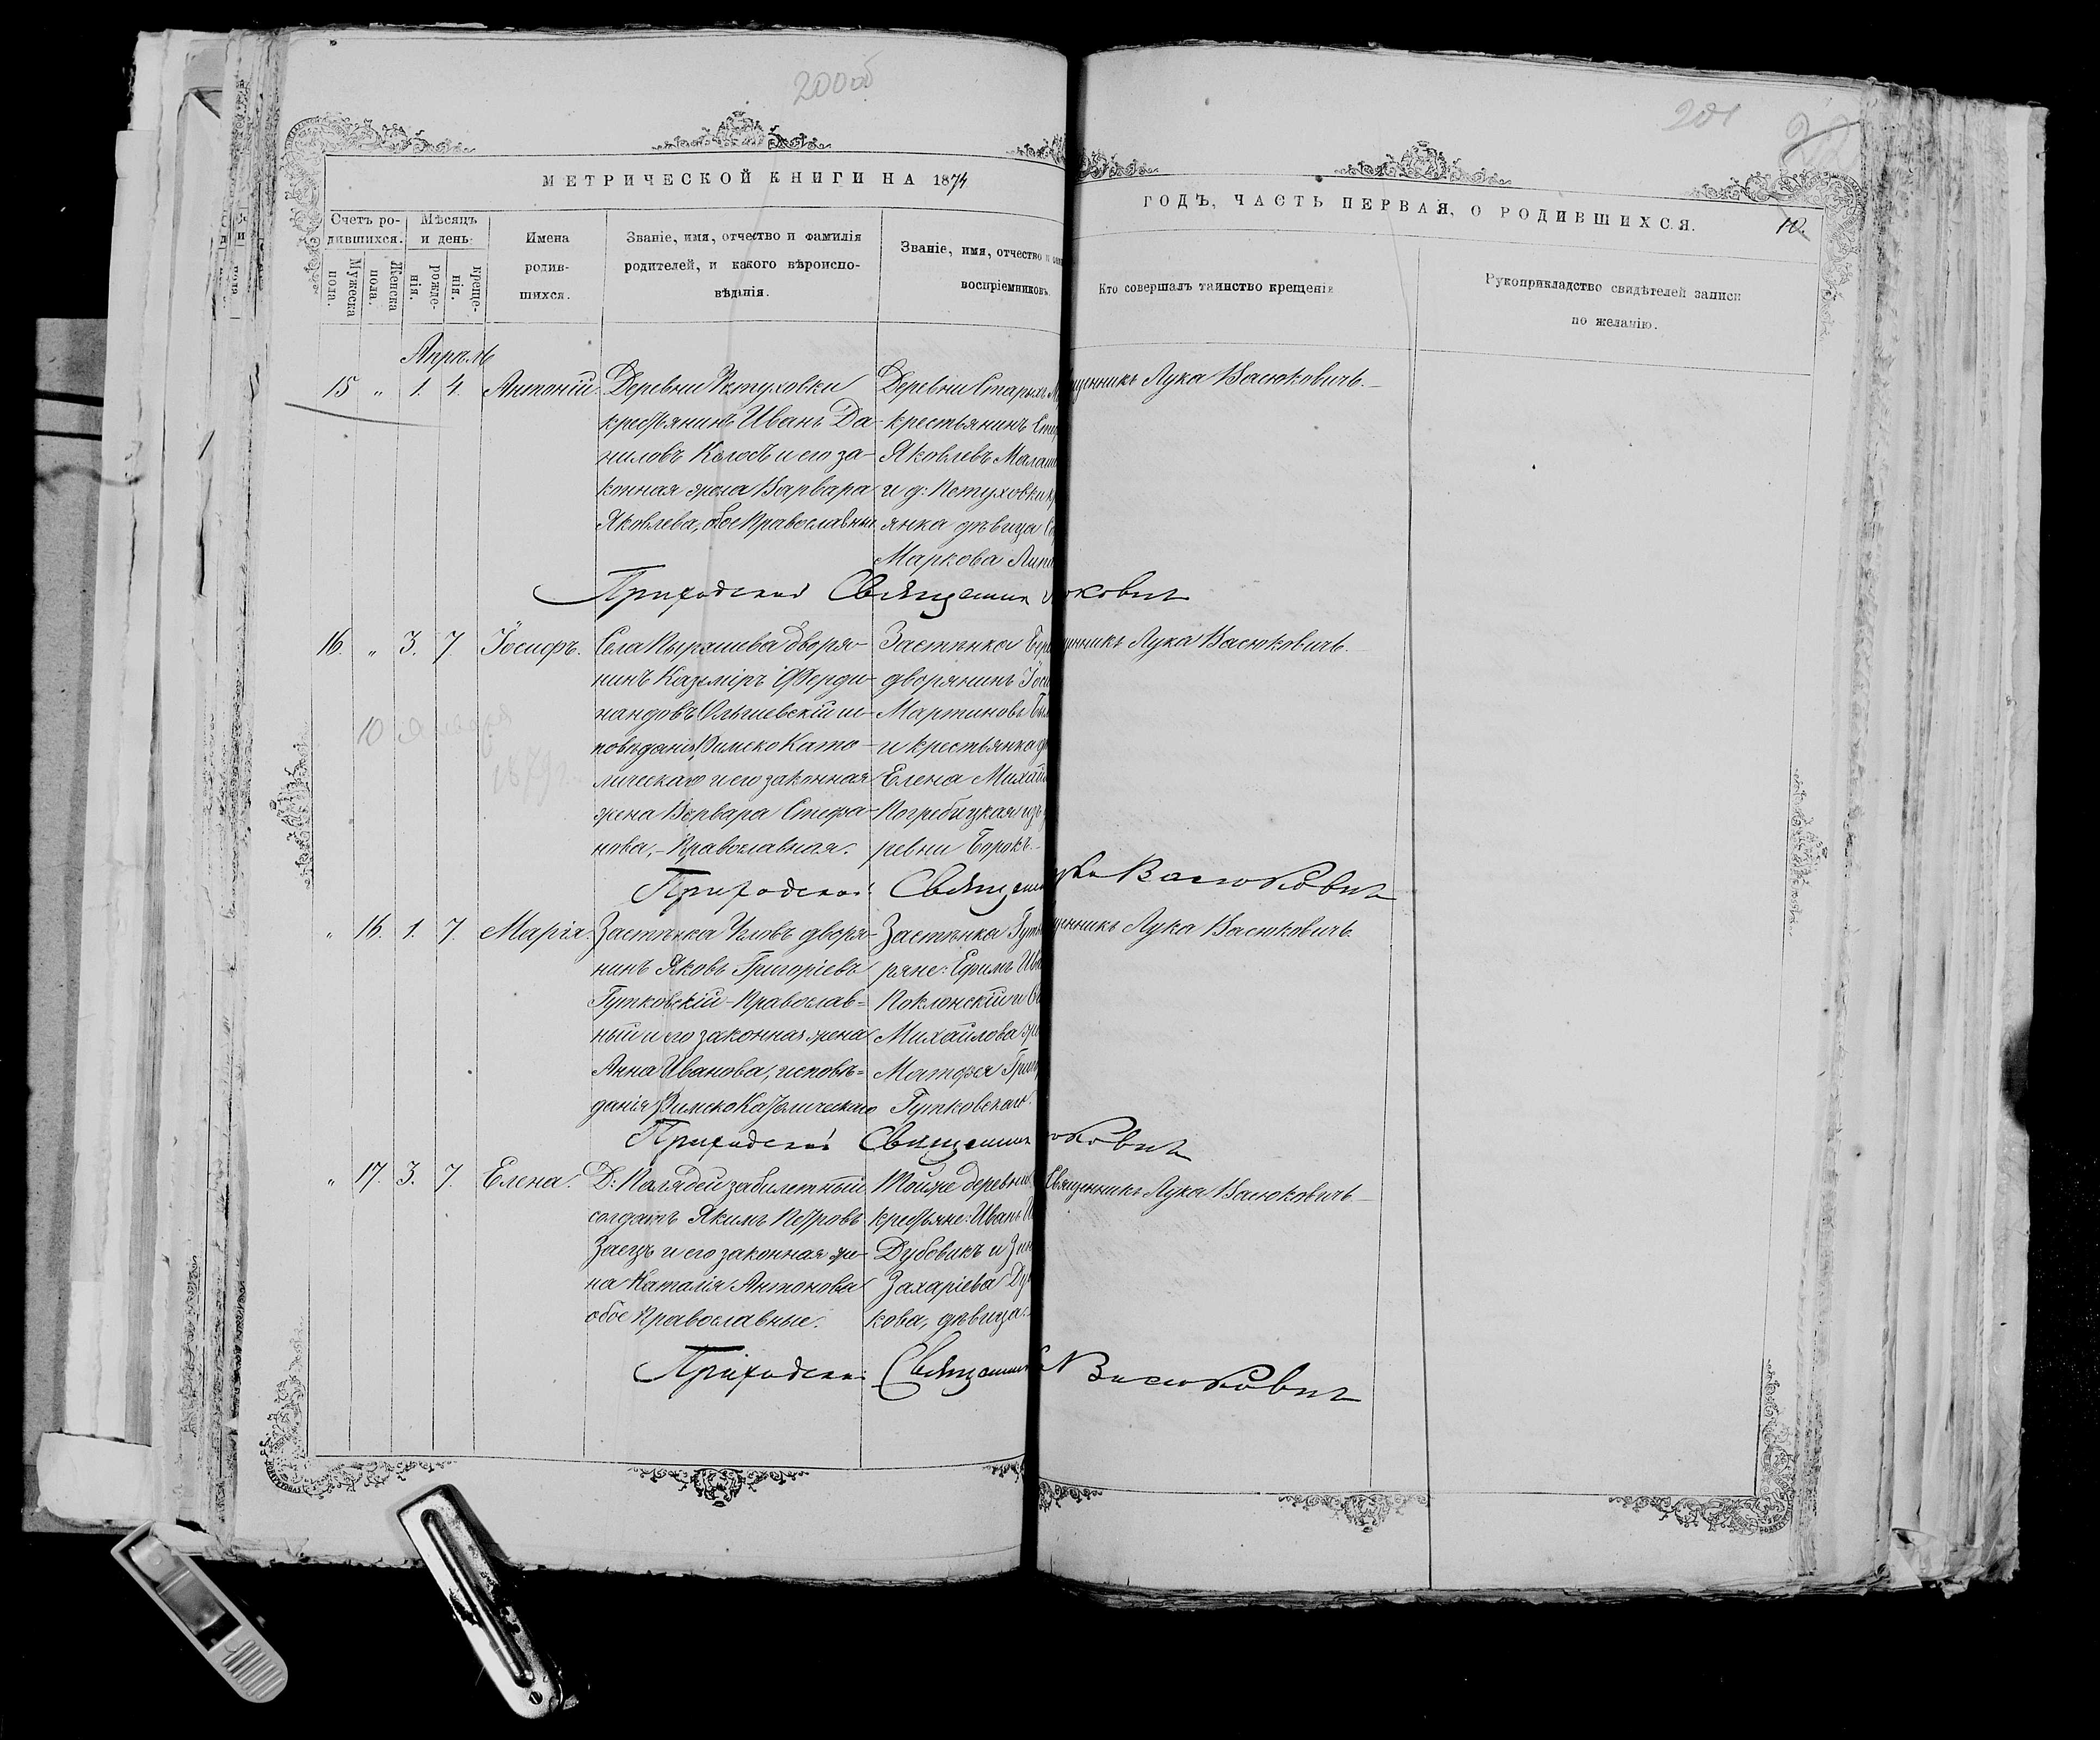 200об
201
МЕТРИЧЕСКОЙ КНИГИ НА 1874
ГОДЪ, ЧАСТЬ ПЕРВАЯ, О РОДИВШИХСЯ.
10.
Счетъ ро-
дившихся.
Мужеска
пола.
Женска
пола.
Мѣсяцъ
и день
рожде-
нія.
креще-
нія.
Имена
родив-
шихся.
Званіе, имя, отчество и фамилія
родителей, и какого вѣроиспо-
вѣданія.
Званіе, имя, отчество и
воспріемниковъ.
Кто совершалъ таинство крещенія
Рукоприкладство свидѣтелей записи
по желанію.
Апрѣль
15 " 1. 4. Антоній.
Деревни Петуховки
крестьянинъ Иванъ Да-
ниловъ и его за-
конная жена Варвара
Яковлева, обое Православные
Деревни Старыхъ
крестьянинъ
Яковлевъ
и д: Петуховки
янка дѣвица
Маркова
щенникъ Лука Васюковичъ.
Приходской Священник юкович
16 " 3. 7. Іосифъ.
Села Пырашева дворя-
нинъ Казиміръ Ферди-
нандовъ ис-
повѣданія Римско Като-
лическаго и его законная
жена Варвара Стефа-
нова, - Православная.
Застѣнка
дворянинъ
Мартиновъ
и крестьянка
Елена
Погребицкая изъ
ревни Борокъ.
щенникъ Лука Васюковичъ.
10 Января
1879г.
Приходской Священ Васюкович
" 16. 1. 7. Марія.
Застѣнка дворя-
нинъ Яковъ Григоріевъ
Гутковскій - Православ-
ный и его законная жена
Анна Иванова, исповѣ-
данія Римско Католическаго
Застѣнка
ряне: Ефимъ
Поклонскій и
Михайлова
Матфея
Гутковскаго.
щенникъ Лука Васюковичъ.
Приходской Священник юкович
" 17. 3. 7. Елена.
Д: забилетный
солдатъ Якимъ Петровъ
Заецъ и его законная же-
на Наталія Антонова
обое Православные.
Тойже деревни
крестьяне: Иванъ
Дубовикъ и
Захаріева
кова, дѣвица.
Священникъ Лука Васюковичъ.
Приходской Священник Васюкович